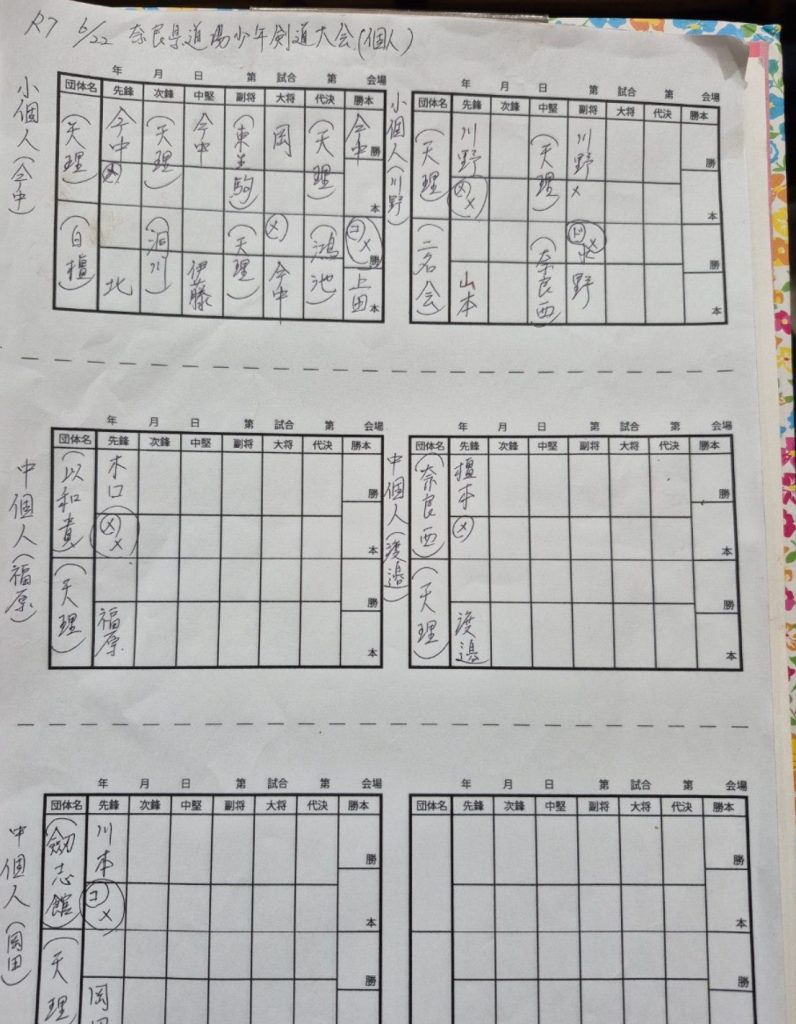 R7 6/22 奈良県道場少年剣道大会(個人)
小個人(今中)
年 月 日 第 試合 第 会場
団体名 先鋒 次鋒 中堅 副将 大将 代決 勝本
(天理) 今中 (天理) 今中 (東生駒) 岡 (天理) 今中
メ
勝
本
メ コメ
(白橿) 北 (洞川) 伊藤 (天理) 今中 (鴻池) 上田
勝
本
小個人(川野)
年 月 日 第 試合 第 会場
団体名 先鋒 次鋒 中堅 副将 大将 代決 勝本
(天理) 川野 (天理) 川野
メメ メ
勝
本
ドメ
(二名会) 山本 (奈良西) 水野
勝
本
中個人(福原)
年 月 日 第 試合 第 会場
団体名 先鋒 次鋒 中堅 副将 大将 代決 勝本
(以和貴) 木口
メメ
勝
本
(天理) 福原
勝
本
中個人(渡邉)
年 月 日 第 試合 第 会場
団体名 先鋒 次鋒 中堅 副将 大将 代決 勝本
(奈良西) 橿本
メ
勝
本
(天理) 渡邉
勝
本
中個人(岡田)
年 月 日 第 試合 第 会場
団体名 先鋒 次鋒 中堅 副将 大将 代決 勝本
(剱志館) 川本
コメ
勝
本
(天理 岡田
勝
年 月 日 第 試合 第 会場
団体名 先鋒 次鋒 中堅 副将 大将 代決 勝本
勝
本
勝